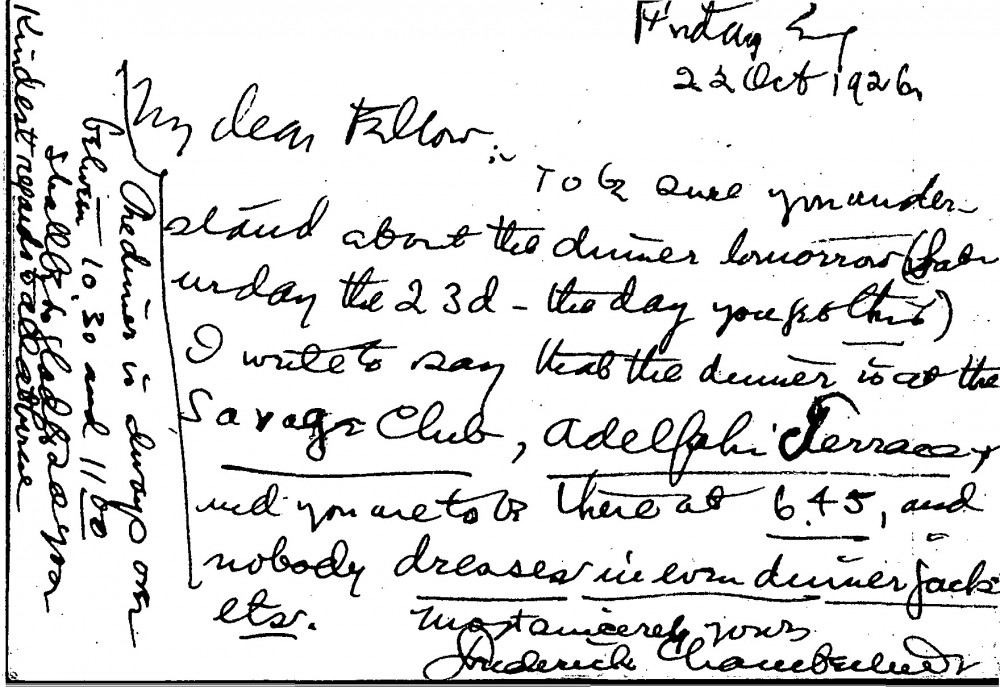 Friday Evg
22 Oct 1926
My dear Fellow:-
To be sure you under-
stand about the dinner tomorrow (Sat-
urday the 23d - the day you get this)
I write to say that the dinner is at the
Savage Club, Adelphi Terrace,
and you are to be there at 6.45, and
nobody dresses in even dinner jack-
ets.
Most sincerely yours
Frederick Chamberlin
The dinner is always over
between 10.30 and 11.00
Shall be so glad to see you
Kindest regards to all at